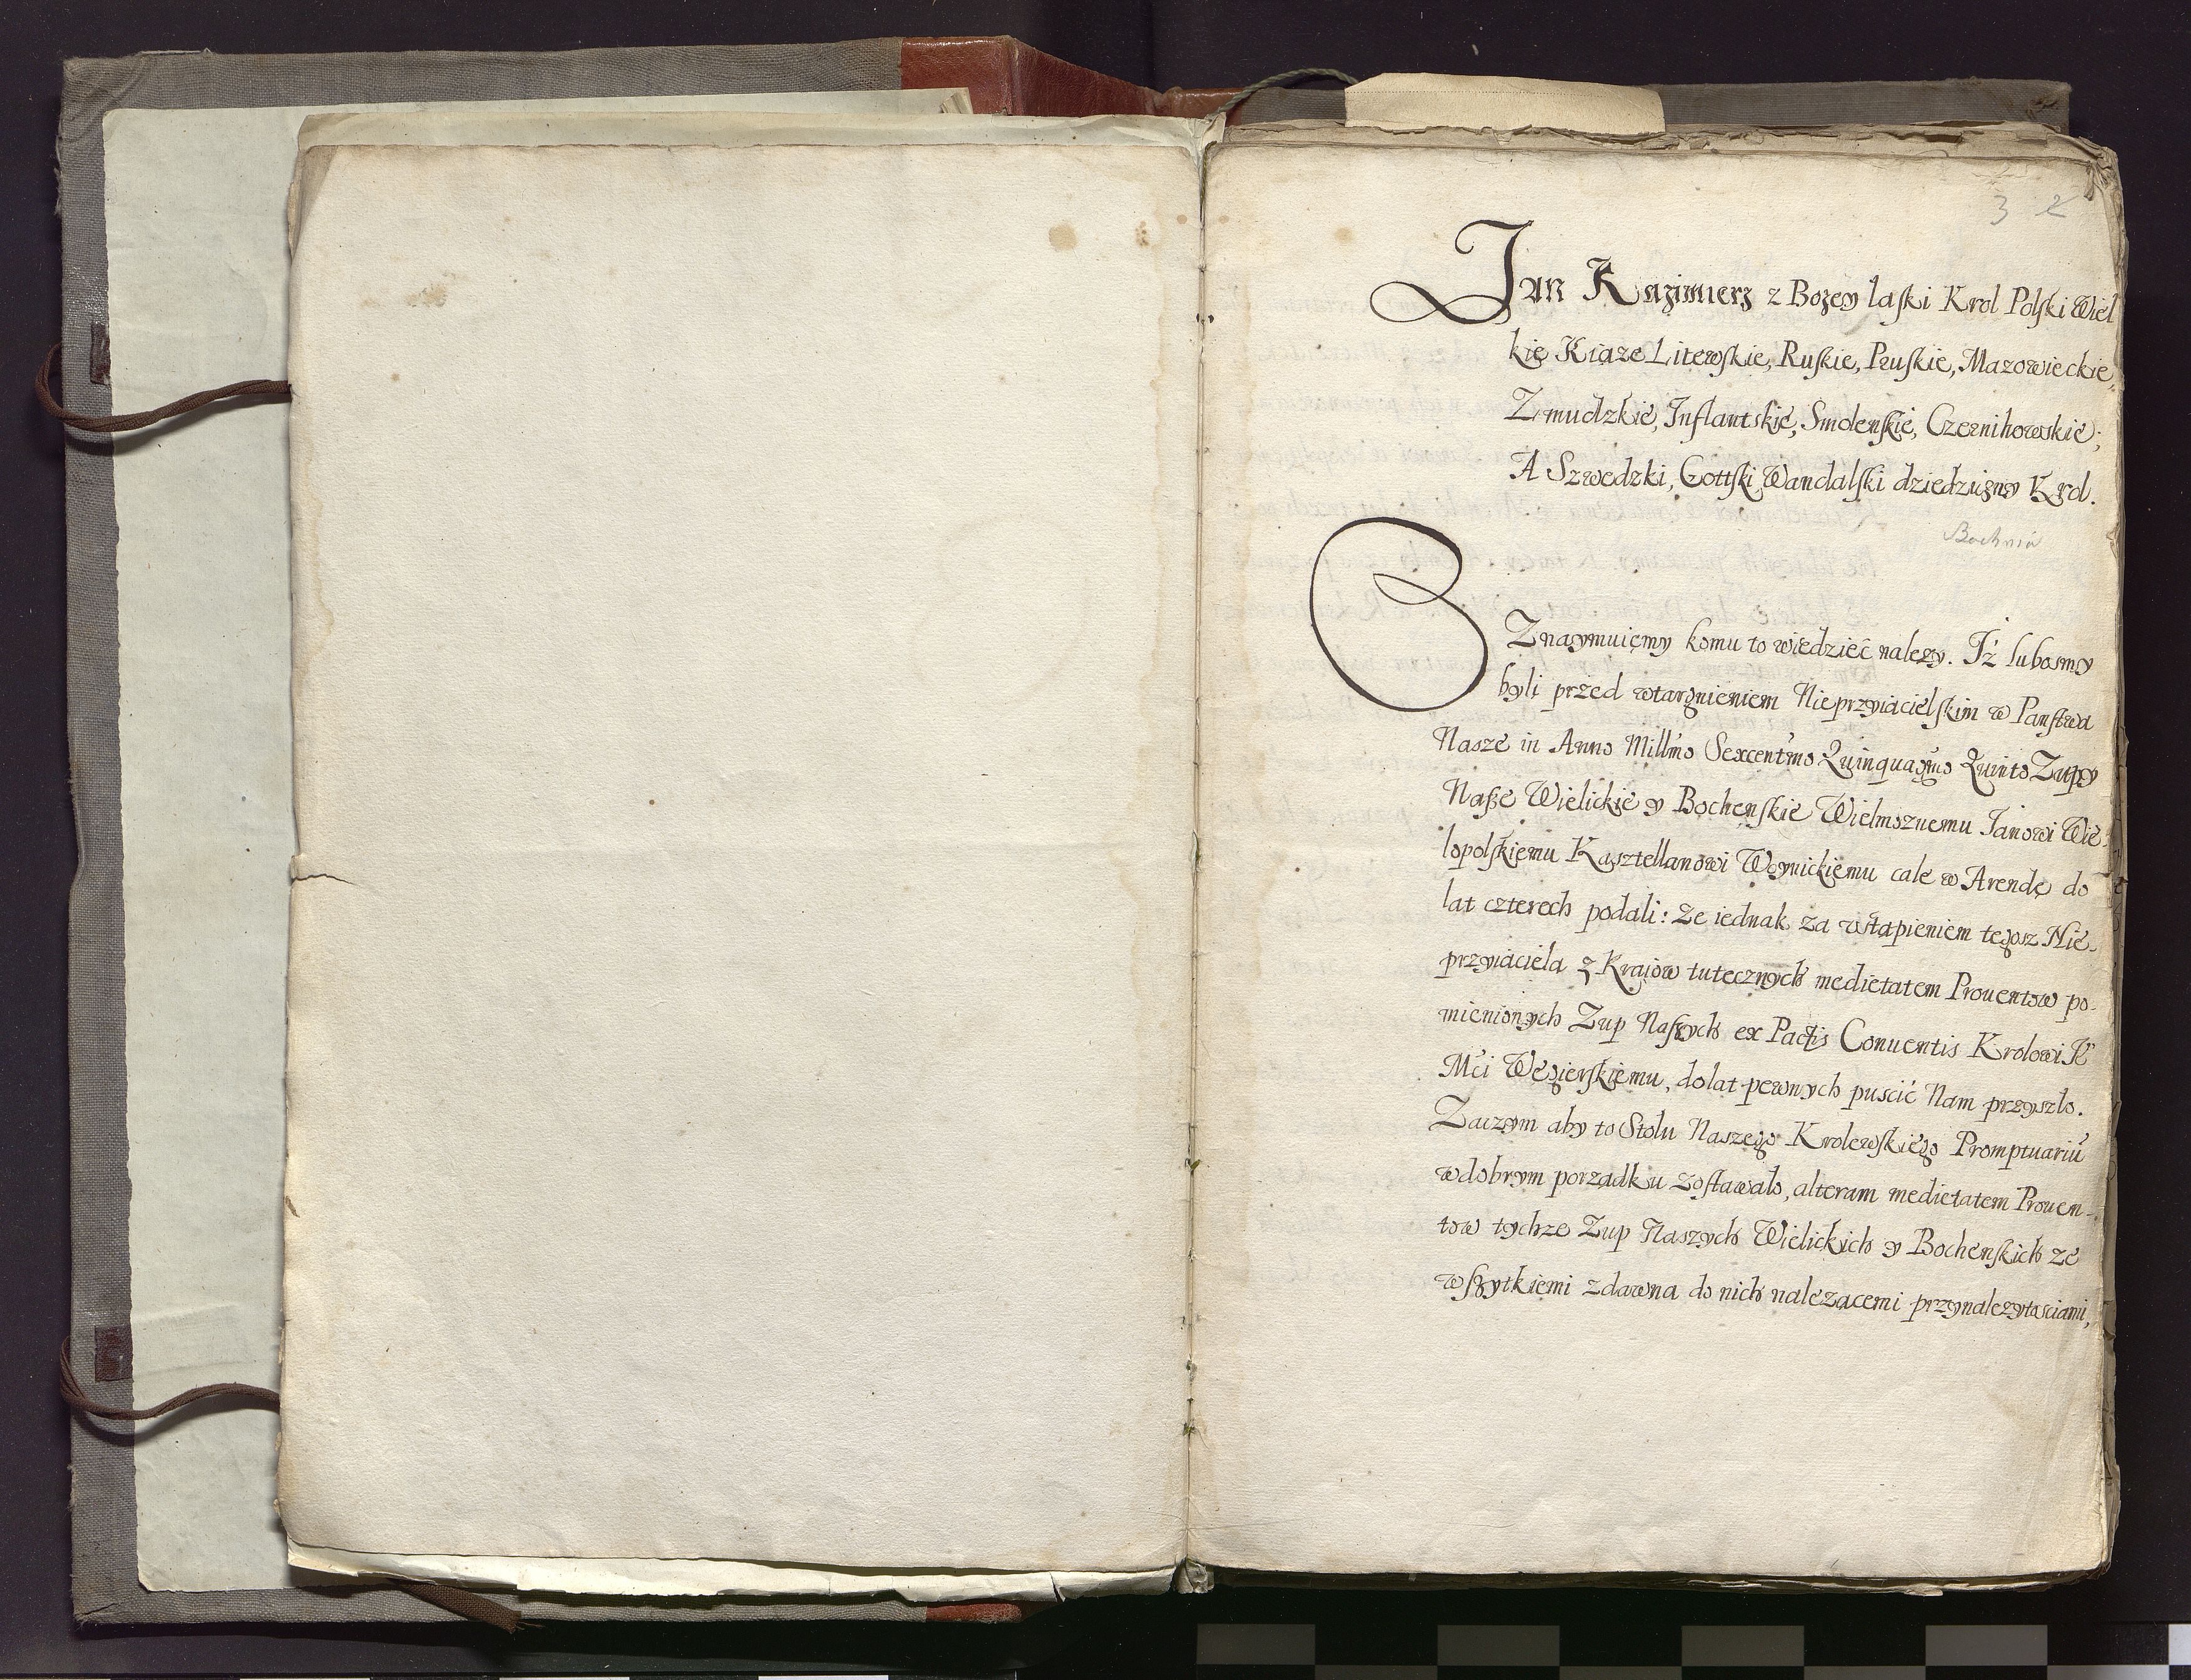 3 2
Jan Kazimierz z Bozey laski Krol Polski Wiel
kie Xiąze Litewskie, Ruskie, Pruskie, Mazowieckie,
Zmudzkie, Inflantskie, Smolenskie, Czernihowskie;
A Szwedzki, Gottski, Wandalski dziedziczny Krol.
Bochnia
Oznaymuięmy komu to wiedzieć nalezy. Iż lubosmy
byli przed wtargnieniem Nieprzyiacielskim w Panstwa
Nasze in Anno Millmo Sexcentmo Quinquagmo Quinto Zupy
Nasze Wielickie y Bochenskie Wielmoznemu Janowi Wie-
lopolskiemu Kasztellanowi Woynickiemu cale w Arendę do
lat czterech podali: ze iednak za ustąpieniem tegosz Nie-
przyiaciela z Kraiow tutecznych medietatem Prouentow po-
mienionych Zup Naszych ex Pactis Conuentis Krolowi Je
Mći Węgierskiemu, do lat pewnych puscić Nam przyszlo.
Zaczym aby to Stolu Naszego Krolewskiego Promptuariũ
w dobrym porządku zostawalo, alteram medietatem Prouen-
tow tychze Zup Naszych Wielickich y Bochenskich ze
wszytkiemi zdawna do nich nalezącemi przynalezytosciami,